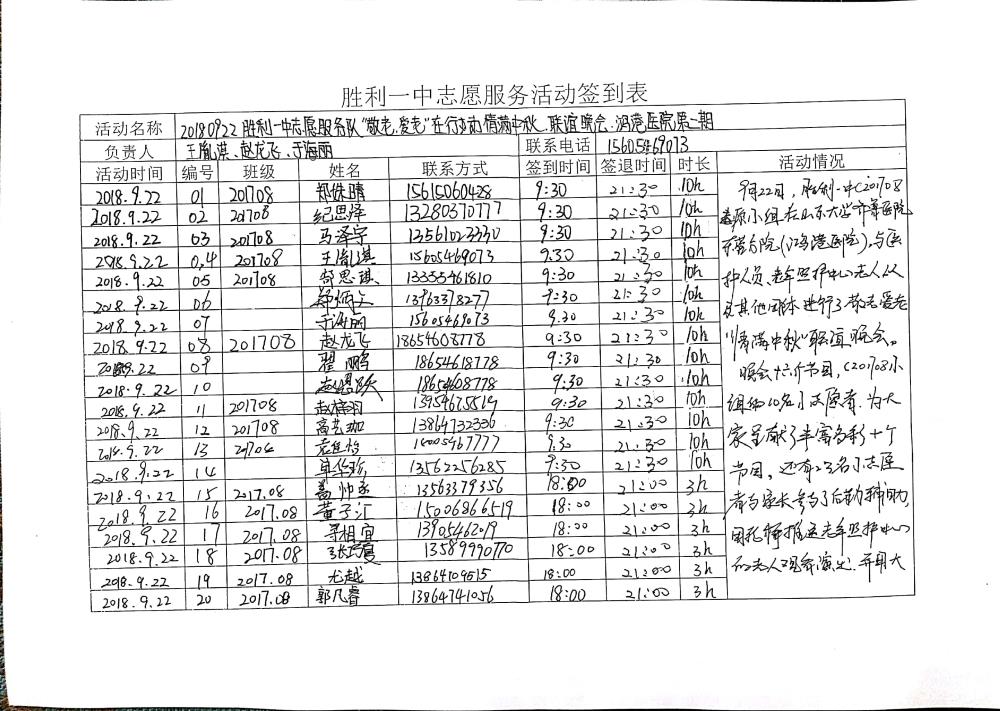 胜利一中志愿服务活动签到表
活动名称 20180922 胜利一中志愿服务队"敬老、爱老"在行动 情满中秋、联谊晚会、鸿港医院第二期
负责人 王胤淇、赵龙飞、于海丽 联系电话 15605469073
活动时间 编号 班级 姓名 联系方式 签到时间 签退时间 时长 活动情况
2018.9.22 01 201708 郑姝晴 15615060428 9:30 21:30 10h
2018.9.22 02 201708 纪思泽 13280370777 9:30 21:30 10h
2018.9.22 03 201708 马泽宇 13561023330 9:30 21:30 10h
2018.9.22 04 201708 王胤淇 15605469073 9:30 21:30 10h
2018.9.22 05 201708 思琪 13355461810 9:30 21:30 10h
2018.9.22 06 郑炳文 13963378277 9:30 21:30 10h
2018.9.22 07 于海丽 15605469073 9:30 21:30 10h
2018.9.22 08 201708 赵龙飞 18654608778 9:30 21:30 10h
2018.9.22 09 翟鹏 18654618778 9:30 21:30 10h
2018.9.22 10 赵 跃 18654608778 9:30 21:30 10h
2018.9.22 11 201708 赵梓羽 13954675519 9:30 21:30 10h
2018.9.22 12 201708 高艺珈 13864732336 9:30 21:30 10h
2018.9.22 13 9:30 21:30 10h
2018.9.22 14 单华珍 13562256285 9:30 21:30 10h
2018.9.22 15 2017.08 盖帅丞 13563379356 18:00 21:00 3h
2018.9.22 16 2017.08 董子汇 15006866519 18:00 21:00 3h
2018.9.22 17 2017.08 寻相宜 13905462019 18:00 21:00 3h
2018.9.22 18 2017.08 张巧夏 13589990770 18:00 21:00 3h
2018.9.22 19 2017.08 尤越 13864109515 18:00 21:00 3h
2018.9.22 20 2017.08 郭凡睿 13864741056 18:00 21:00 3h
9月22日,胜利一中C201708
志愿小组在山东大学齐鲁医院
东营分院(鸿港医院),与医
护人员、老年照护中心老人以
及其他团体进行了敬老爱老
"情满中秋"联谊晚会。
晚会十六个节目,C201708小
组的10名小志愿者,为大
家呈献了丰富多彩十个
节目,还有23名小志愿
者与家长参与了后勤辅助,
用轮椅推送老年照护中心
的老人观看演出,并用大